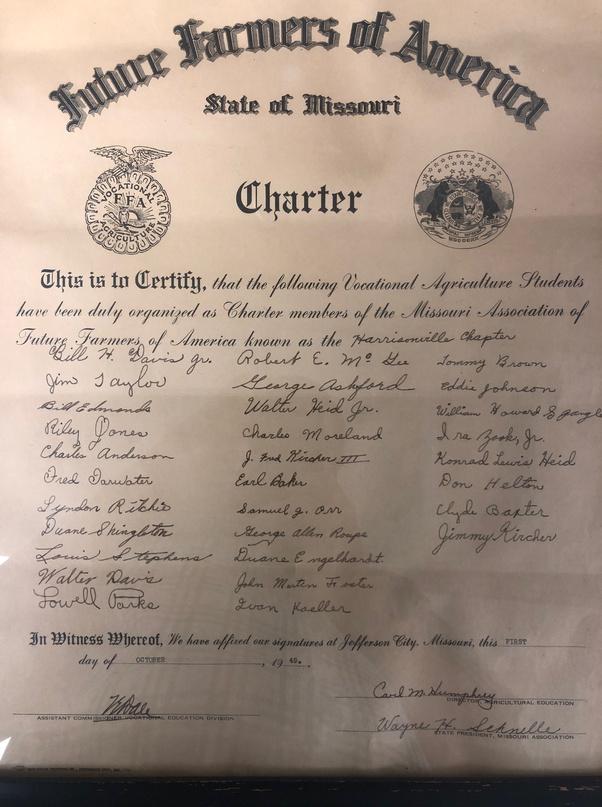 Future Farmers of America
State of Missouri
VOCATIONAL
FFA
AGRICULTURE
Charter
This is to Certify, that the following Vocational Agriculture Students
have been duly organized as Charter members of the Missouri Association of
Future Farmers of America known as the Harrisonville Chapter
Bill H. Davis Jr. Robert E. McGee Tommy Brown
Jim Taylor George Ashford Eddie Johnson
Bill Edmonds Walter Heid Jr. William Howard
Riley Jones Charles Moreland Ira Zook, Jr.
Charles Anderson J. Fred Kircher III Konrad Lewis Heid
Fred Tarwater Earl Baker Don Helton
Lyndon Ritchie Samuel J. Orr Clyde Baxter
Duane Skingleton George Allen Roupe Jimmy Kircher
Louis Stephens Duane Engelhardt
Walter Davis John Martin Foster
Lowell Parks Ivan Kaeller
In Witness Whereof, We have affixed our signatures at Jefferson City, Missouri, this FIRST
day of OCTOBER, 1949.
Carl M. Humphrey
ASSISTANT COMMISSIONER VOCATIONAL EDUCATION DIVISION DIRECTOR, AGRICULTURAL EDUCATION
Wayne H. Schnelle
STATE PRESIDENT, MISSOURI ASSOCIATION